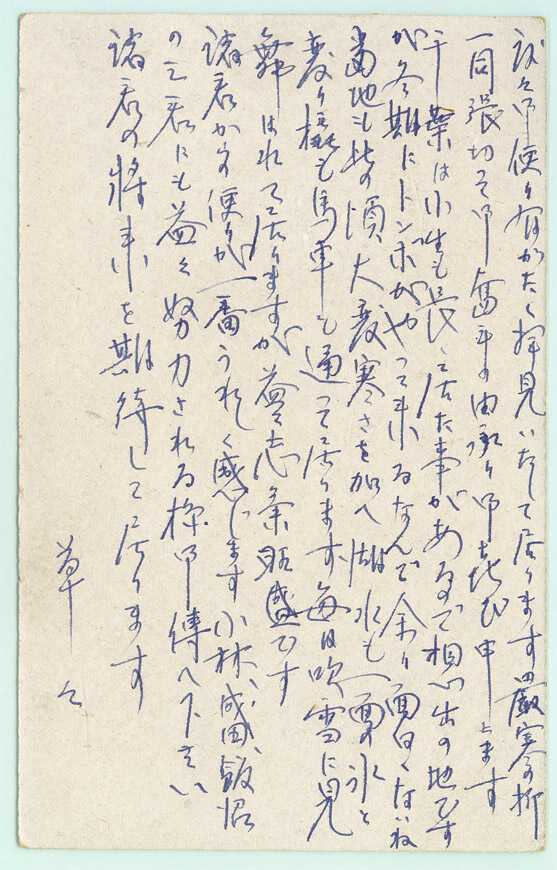 度々御便り有がたく拝見いたして居ります 厳寒の折
一同張切って御奮斗の由承り御喜び申上ます
千葉は小生も長く居た事があるので想出の地です
が冬期にトンボがやって来るなんて余り面白くないね
当地も此の頃大変寒さを加へ湖水も一面の氷と
変り橇も馬車も通って居ります 毎日吹雪に見
舞はれて居りますが益々志気旺盛です
諸君からの便りが一番うれしく感じます 小林、成田、飯沼
の三君にも益々努力される様御傳へ下さい
諸君の将来を期待して居ります
草々